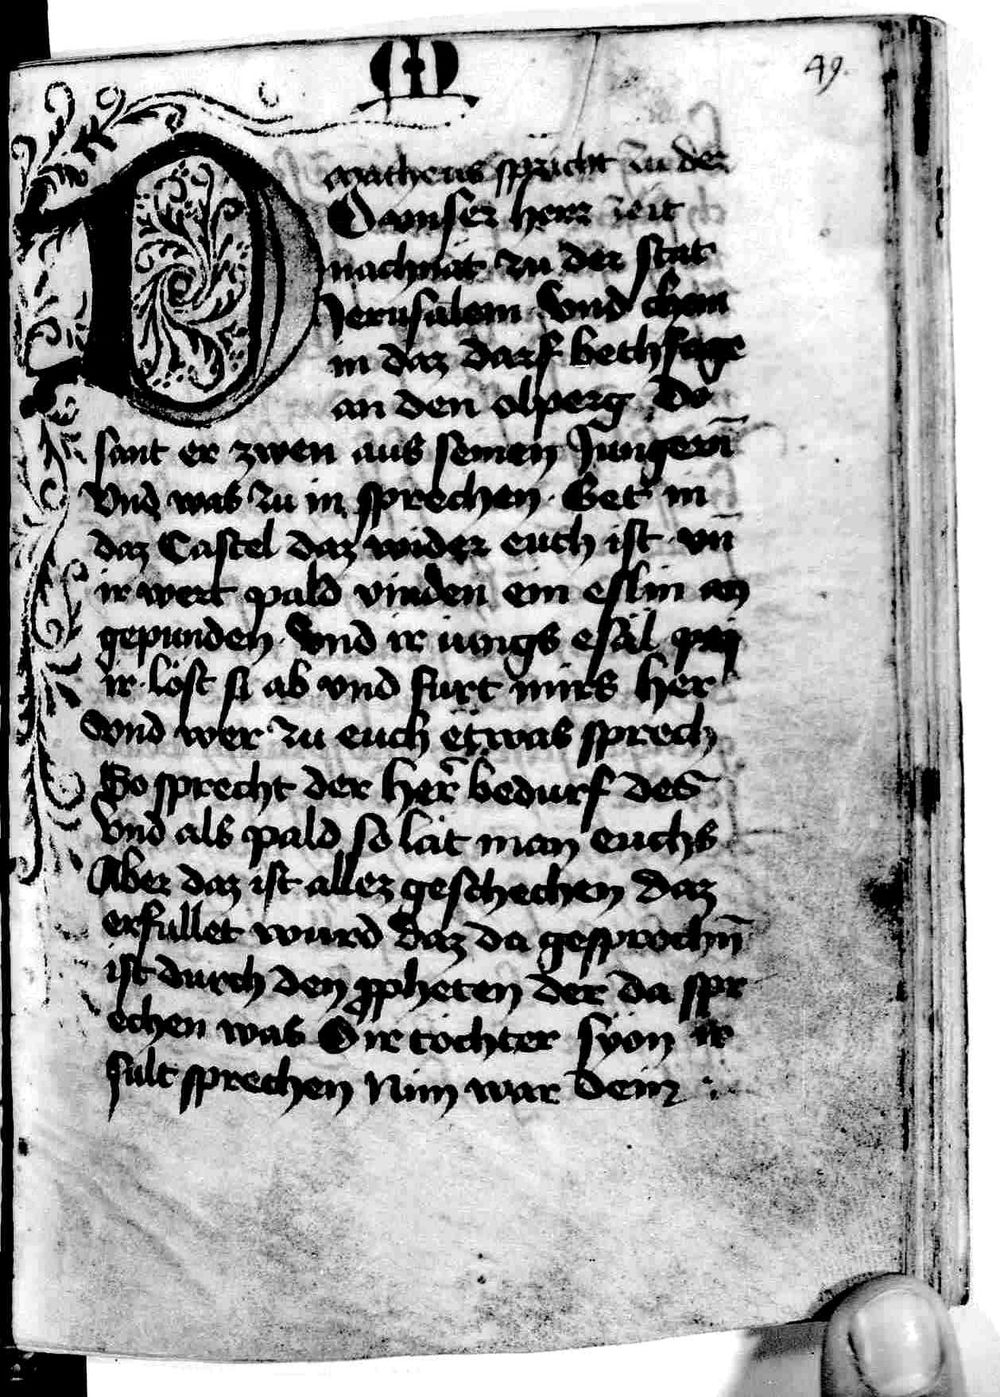 M
49.
D matheus spricht zu der
Do unser herr zeit
nachnat zu der stat
Jerusalem Vnd chom
in daz darf bethfage
an den olperg Do
sant er zwen aus seinen Jungern̄
Vnd was zu in sprechen Get in
daz Castel daz wider euch ist vn̄
ir wert pald vinden ein eslin an
gepunden Vnd ir iungs esäl pey
ir löst si ab vnd furt mirs her
Vnd wer zu euch etwas sprech
So sprecht der her̄ bedurf des
Vnd als pald so lat man euchs
Aber daz ist allez geschechen daz
erfullet wurd daz da gesprochn̄
ist durch den ꝓpheten der da spr
echen was O ir tochter syon ir
sult sprechen Nim war dein